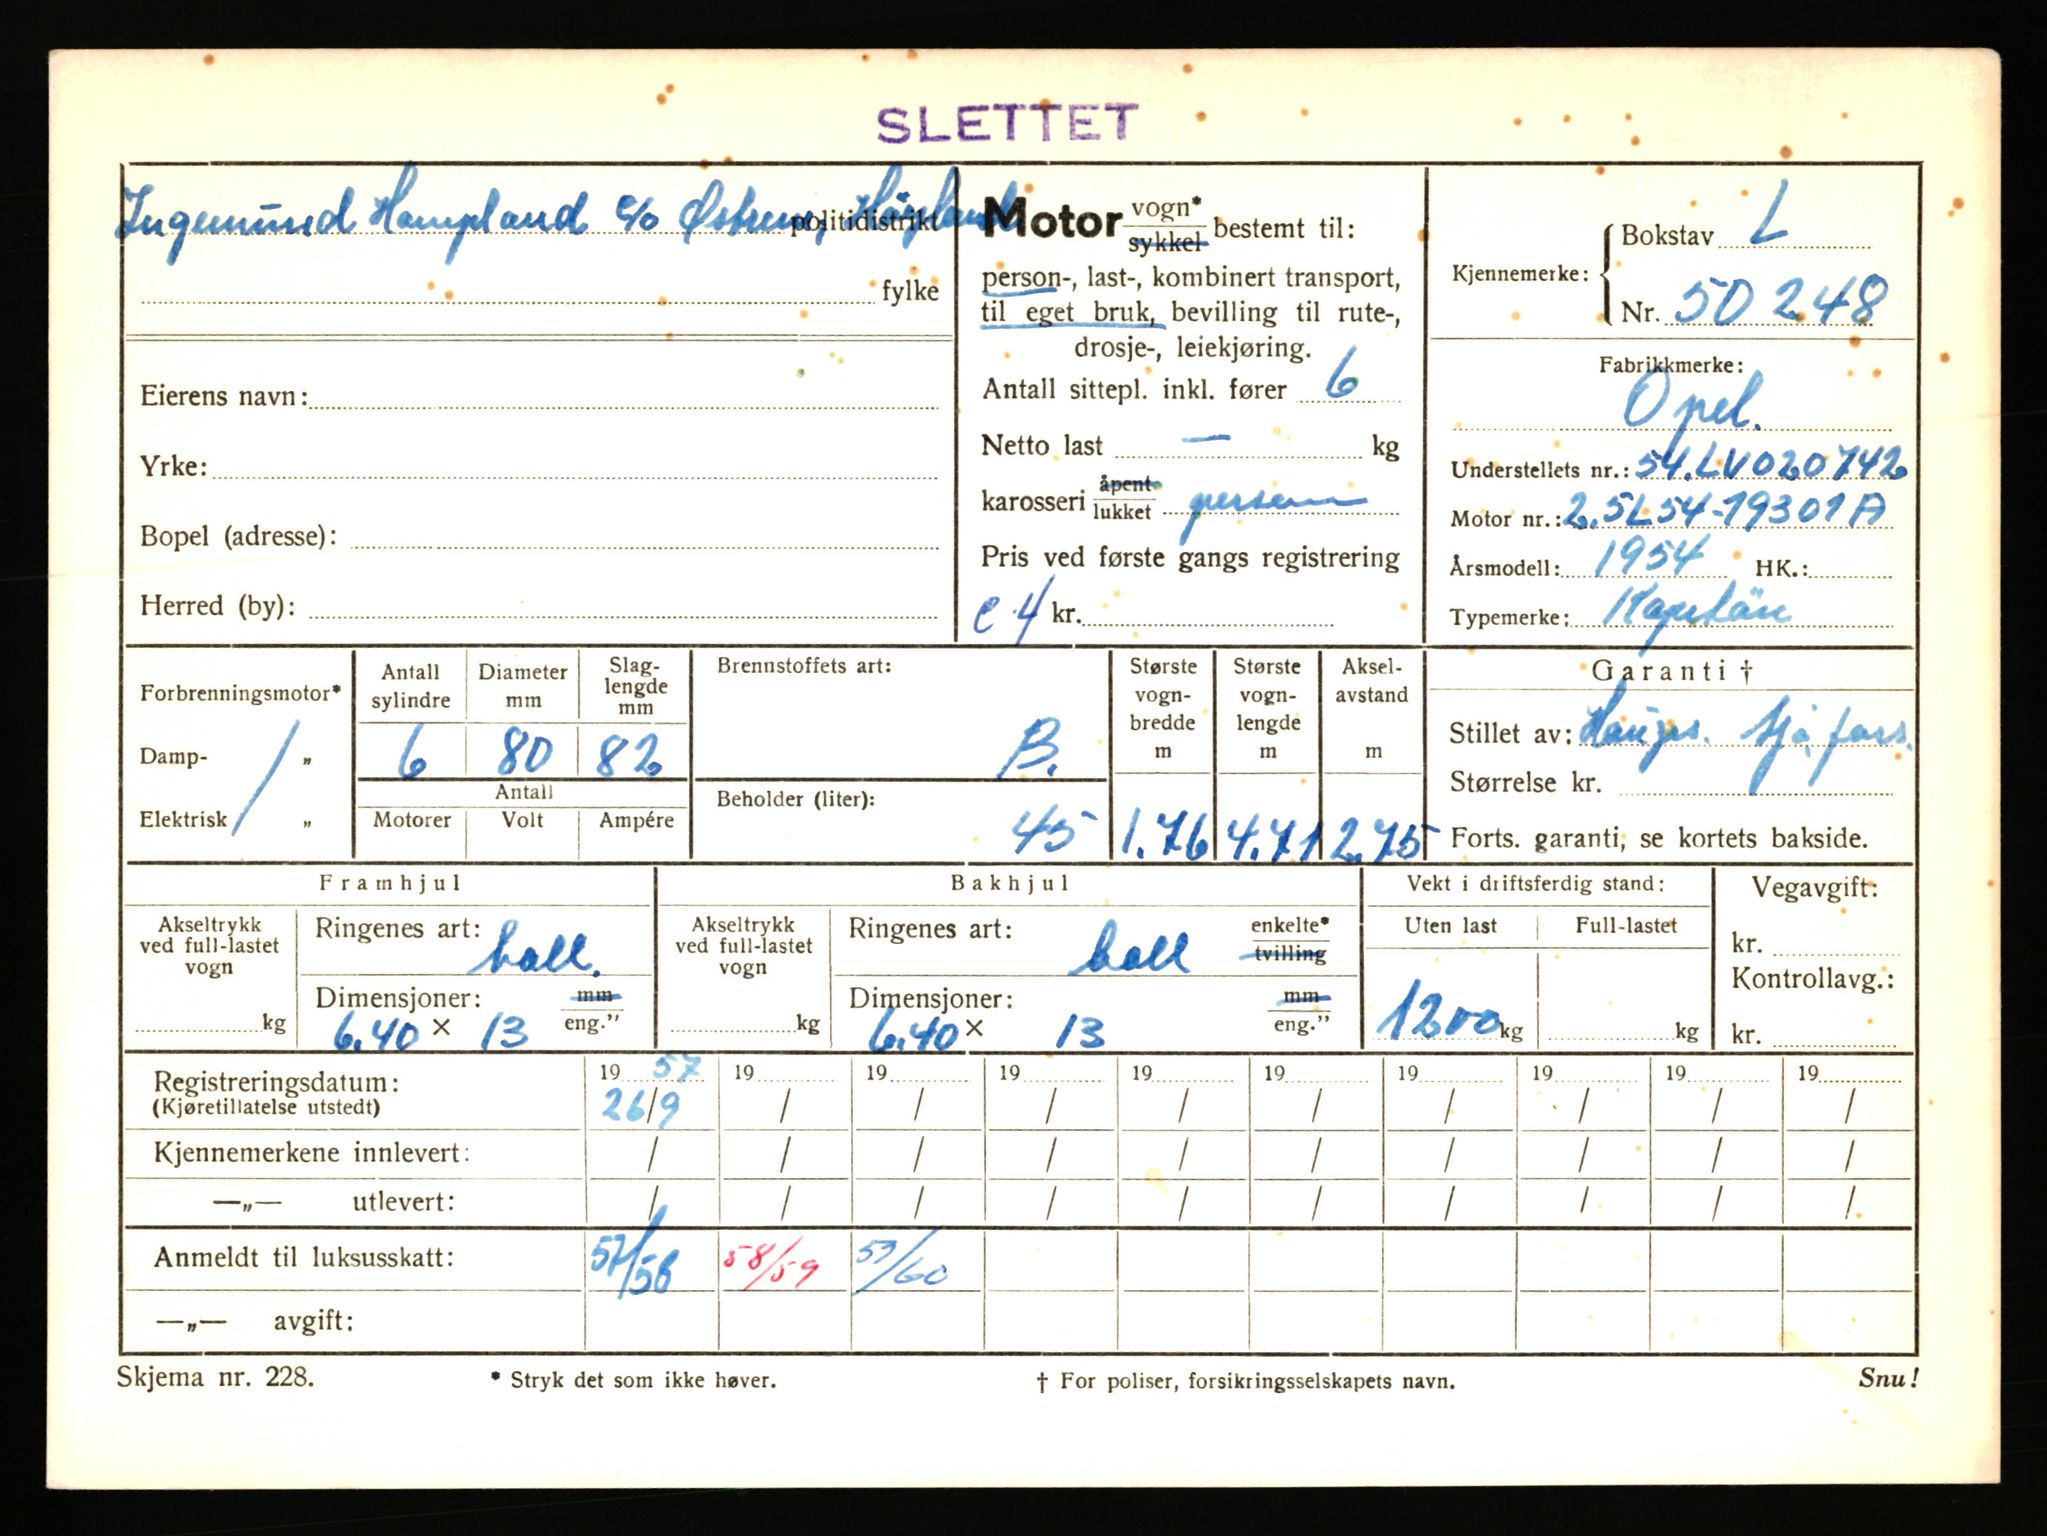 SLETTET
Ingemund Hampland c/o Østrem, politidistrikt
fylke
Eierens navn:
Yrke:
Bopel (adresse):
Herred (by):
Motor vogn* sykkel bestemt til:
person-, last-, kombinert transport,
til eget bruk, bevilling til rute-,
drosje-, leiekjøring.
Antall sittepl. inkl. fører 6
Netto last — kg
karosseri åpent lukket person
Pris ved første gangs registrering
e 4 kr.
Kjennemerke: Bokstav L
Nr. 50248
Fabrikkmerke:
Opel.
Understellets nr.: 54.LV020742
Motor nr.: 2.5L54-19301A
Årsmodell: 1954 HK.:
Typemerke: Kapitän
Forbrenningsmotor*
Damp- „
Elektrisk „
Antall sylindre
Diameter mm
Slag-lengde mm
6 80 82
Antall
Motorer Volt Ampére
Brennstoffets art:
B.
Beholder (liter):
45
Største vogn-bredde m
1.76
Største vogn-lengde m
4.71
Aksel-avstand m
2.75
Garanti †
Stillet av: Haugs. Sjøfors.
Størrelse kr.
Forts. garanti, se kortets bakside.
Framhjul
Akseltrykk ved full-lastet vogn
kg
Ringenes art: ball.
Dimensjoner: mm
6.40 × 13 eng."
Bakhjul
Akseltrykk ved full-lastet vogn
kg
Ringenes art: ball enkelte* tvilling
Dimensjoner: mm
6.40 × 13 eng."
Vekt i driftsferdig stand:
Uten last Full-lastet
1200 kg kg
Vegavgift:
kr.
Kontrollavg.:
kr.
Registreringsdatum: 19 57 19 19 19 19 19 19 19 19 19
(Kjøretillatelse utstedt) 26/9 / / / / / / / / /
Kjennemerkene innlevert: / / / / / / / / / /
—„— utlevert: / / / / / / / / / /
Anmeldt til luksusskatt: 57/58 58/59 59/60
—„— avgift:
Skjema nr. 228. * Stryk det som ikke høver. † For poliser, forsikringsselskapets navn. Snu!